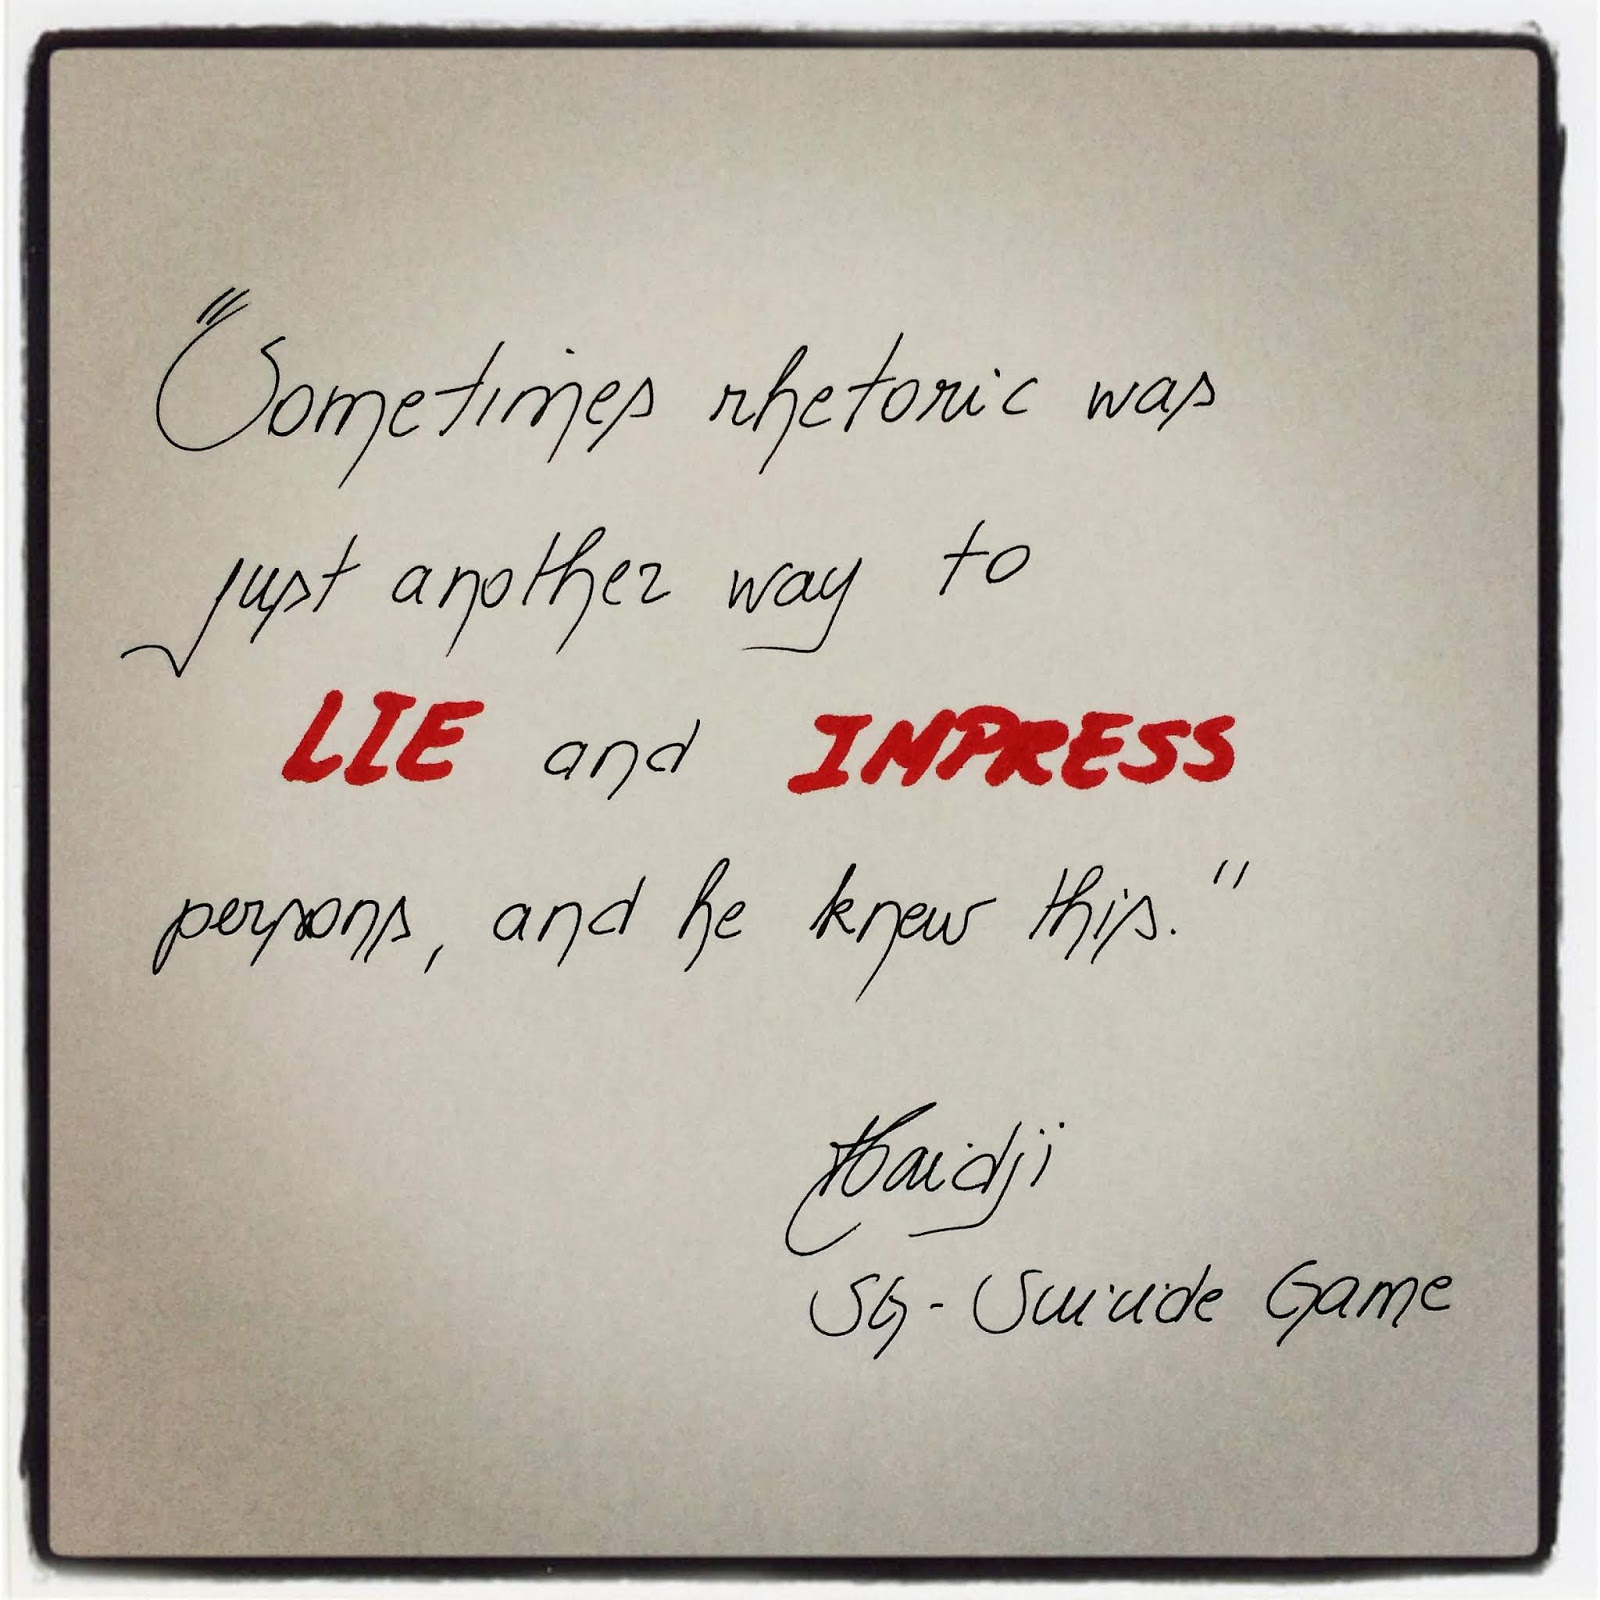 "Sometimes rhetoric was
just another way to
LIE and IMPRESS
persons, and he knew this."
Haidji
SG - Suicide Game